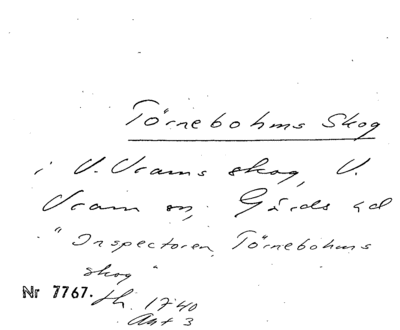 Törnebohms Skog
i V. Vrams skog, V.
Vram sn, Gärds hd
"Inspectoren Törnebohms
skog"
Nr 7767. Lh. 1740
Akt 3